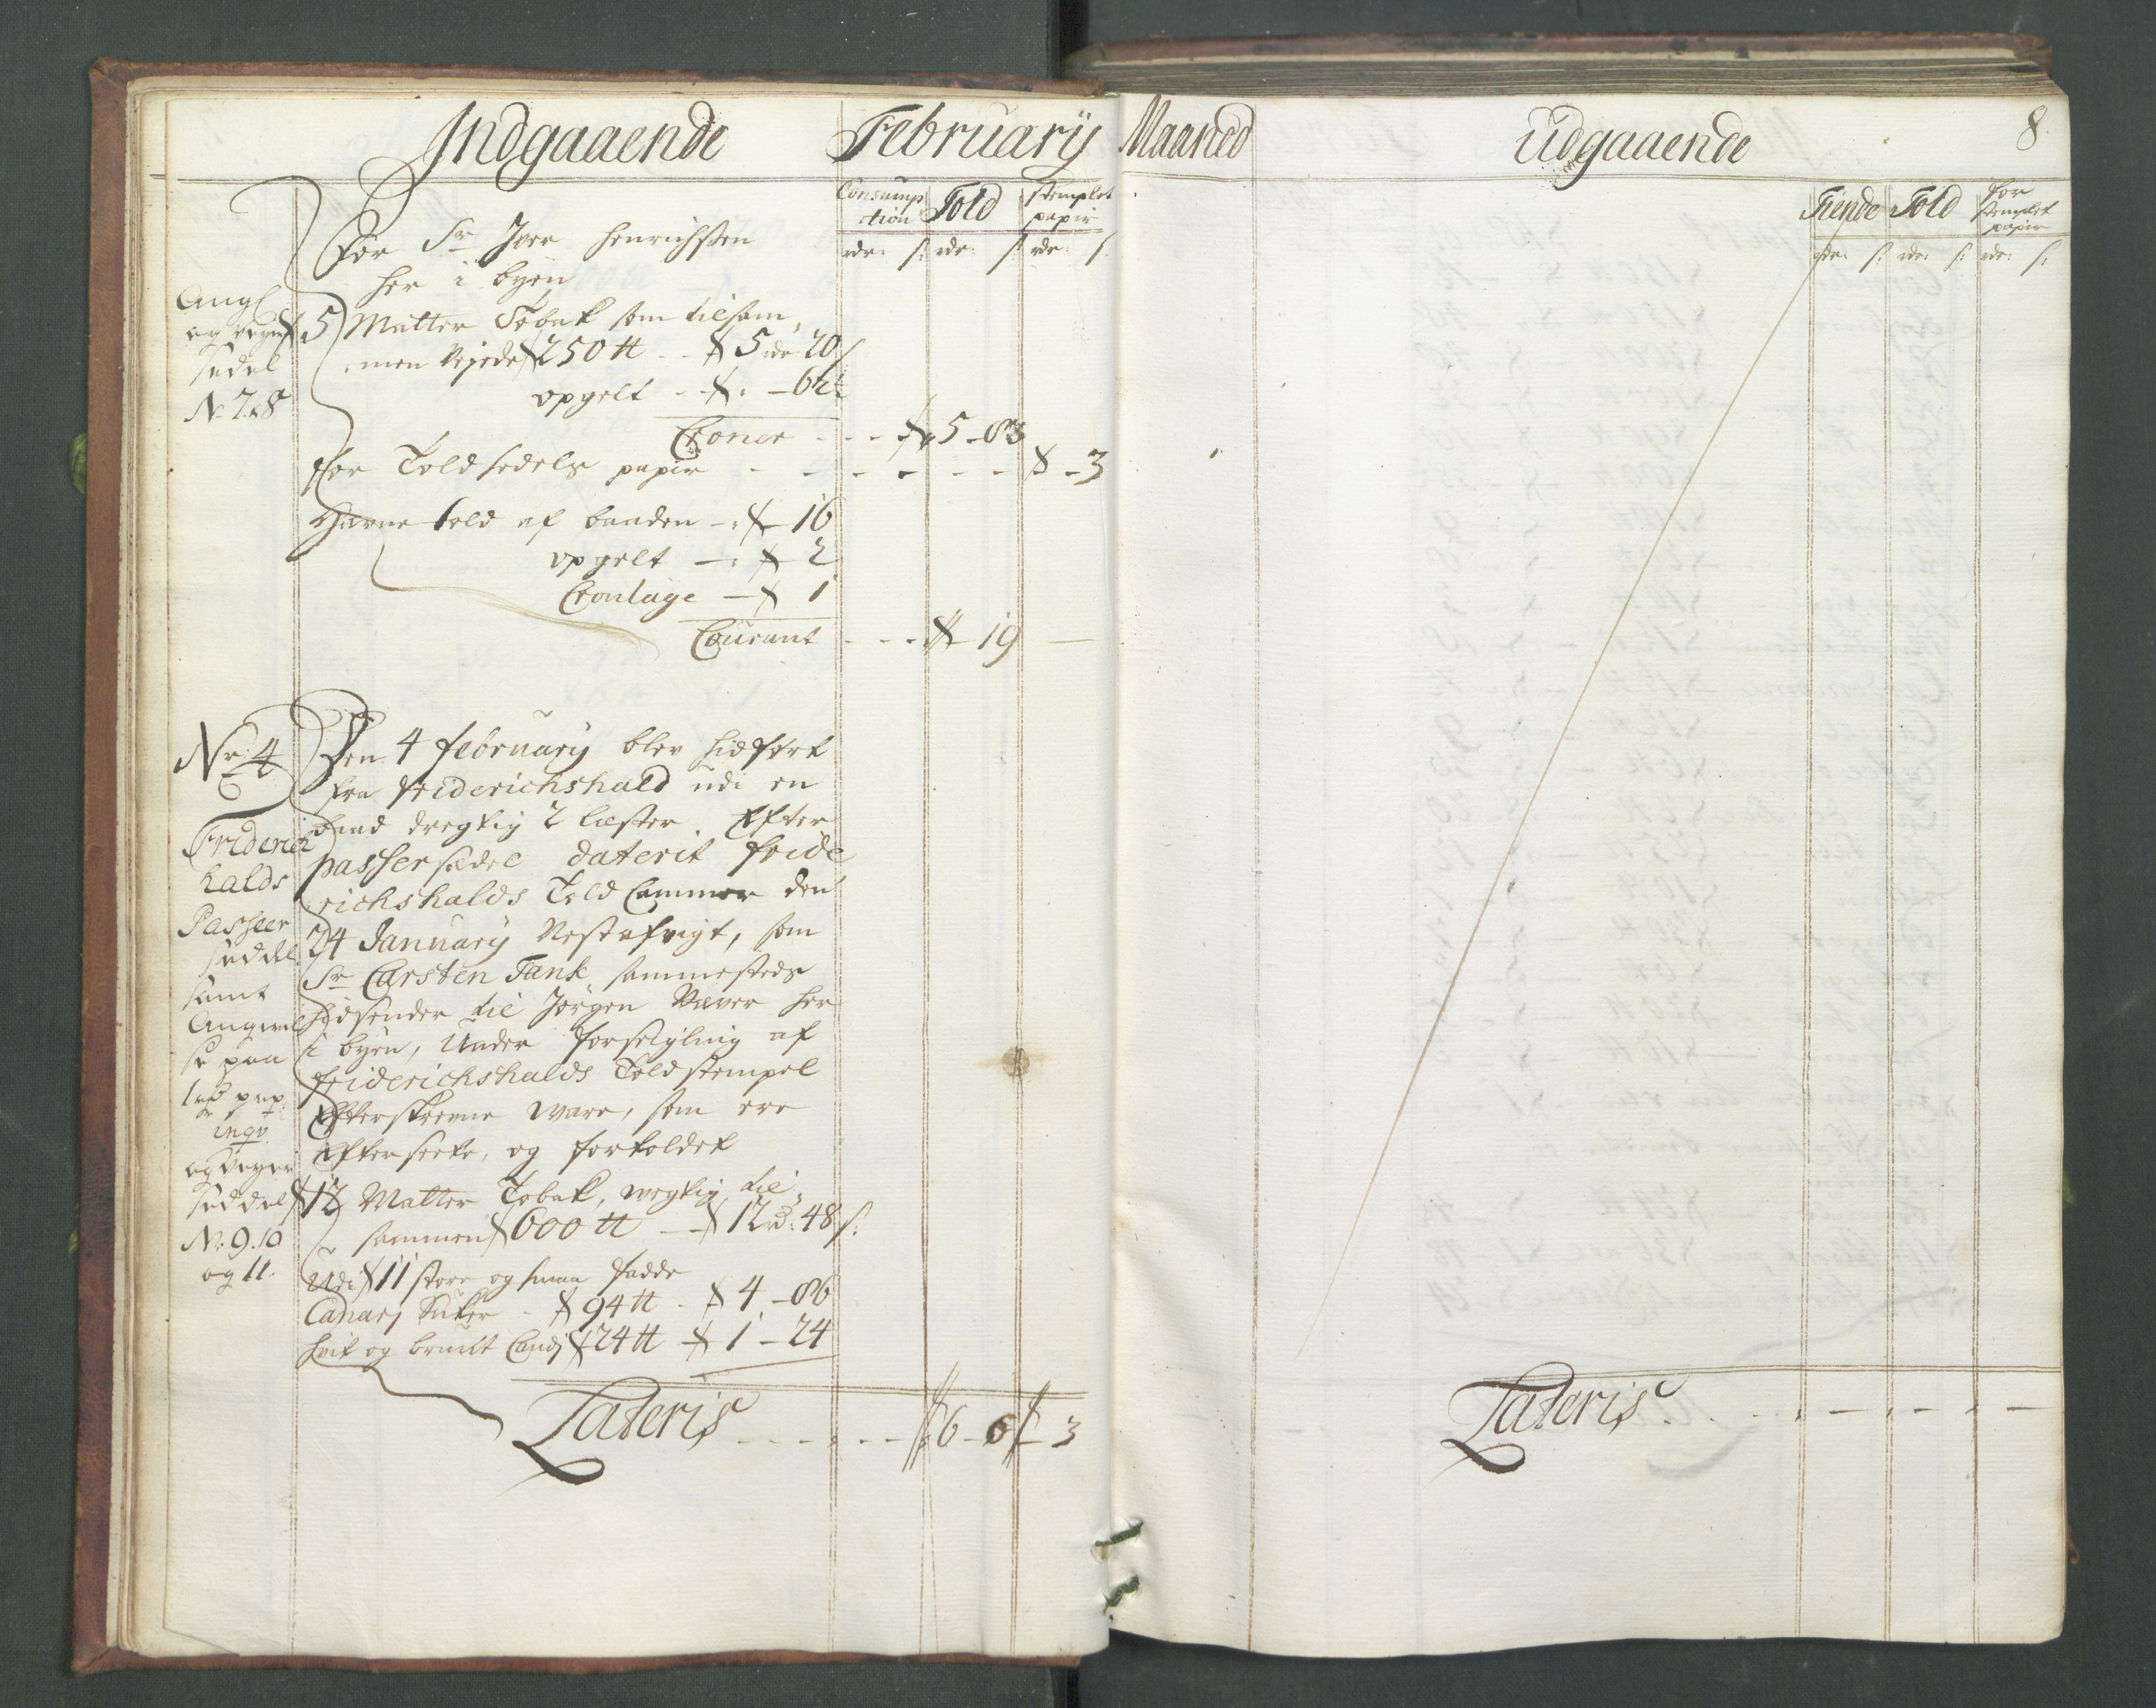 Indgaaende Februarij Maaned Udgaaende 8.
Consumption Told stemplet papir
rdr: s: rdr: s: rdr: s:
For Sr Iver Henrichssen
her i byen
Ang:
og veyer
sedel
No 7. 8
5 Matter Tobak som tilsam
men Vejede 250 ℔ - 5 rdr 20 s
opgelt - - 62½
Croner - - - 5 - 83
For Toldsedels papir - - - - - - 3
Havne told af baaden - 16
opgelt - 2
Cronlage - 1
Courant - - - 19
Nr: 4
Friderich
halds
Passeer
seddel
samt
Angivel
se paa
No 9. 10
og 11.
Den 4 February blev hidført
fra friderichshald udi en
baad dregtig 2 læster. Efter
passersedel daterit fride
richshalds Told Cammer den
24 January Nestafvigt, som
Sr Carsten Tank sammesteds
hidsender til Jørgen Væver her
i byen, Under forseigling af
friderichshalds Toldstempel
Efterskrevne ware, som ere
Efterseete, og fortoldet
12 Matter Tobak, wegtig til
sammen 600 ℔ - 12 rd: 48 s:
Udi 11 store og smaa fadde
Canarj Suker - 94 ℔ - 4 - 86
hvit og bruunt Candj 24 ℔ - 1 - 24
Lateris - - - - - - 6 - 6 - 3
Tiende Told for stemplet papir
rdr: s: rdr: s: rdr: s:
Lateris - - - -